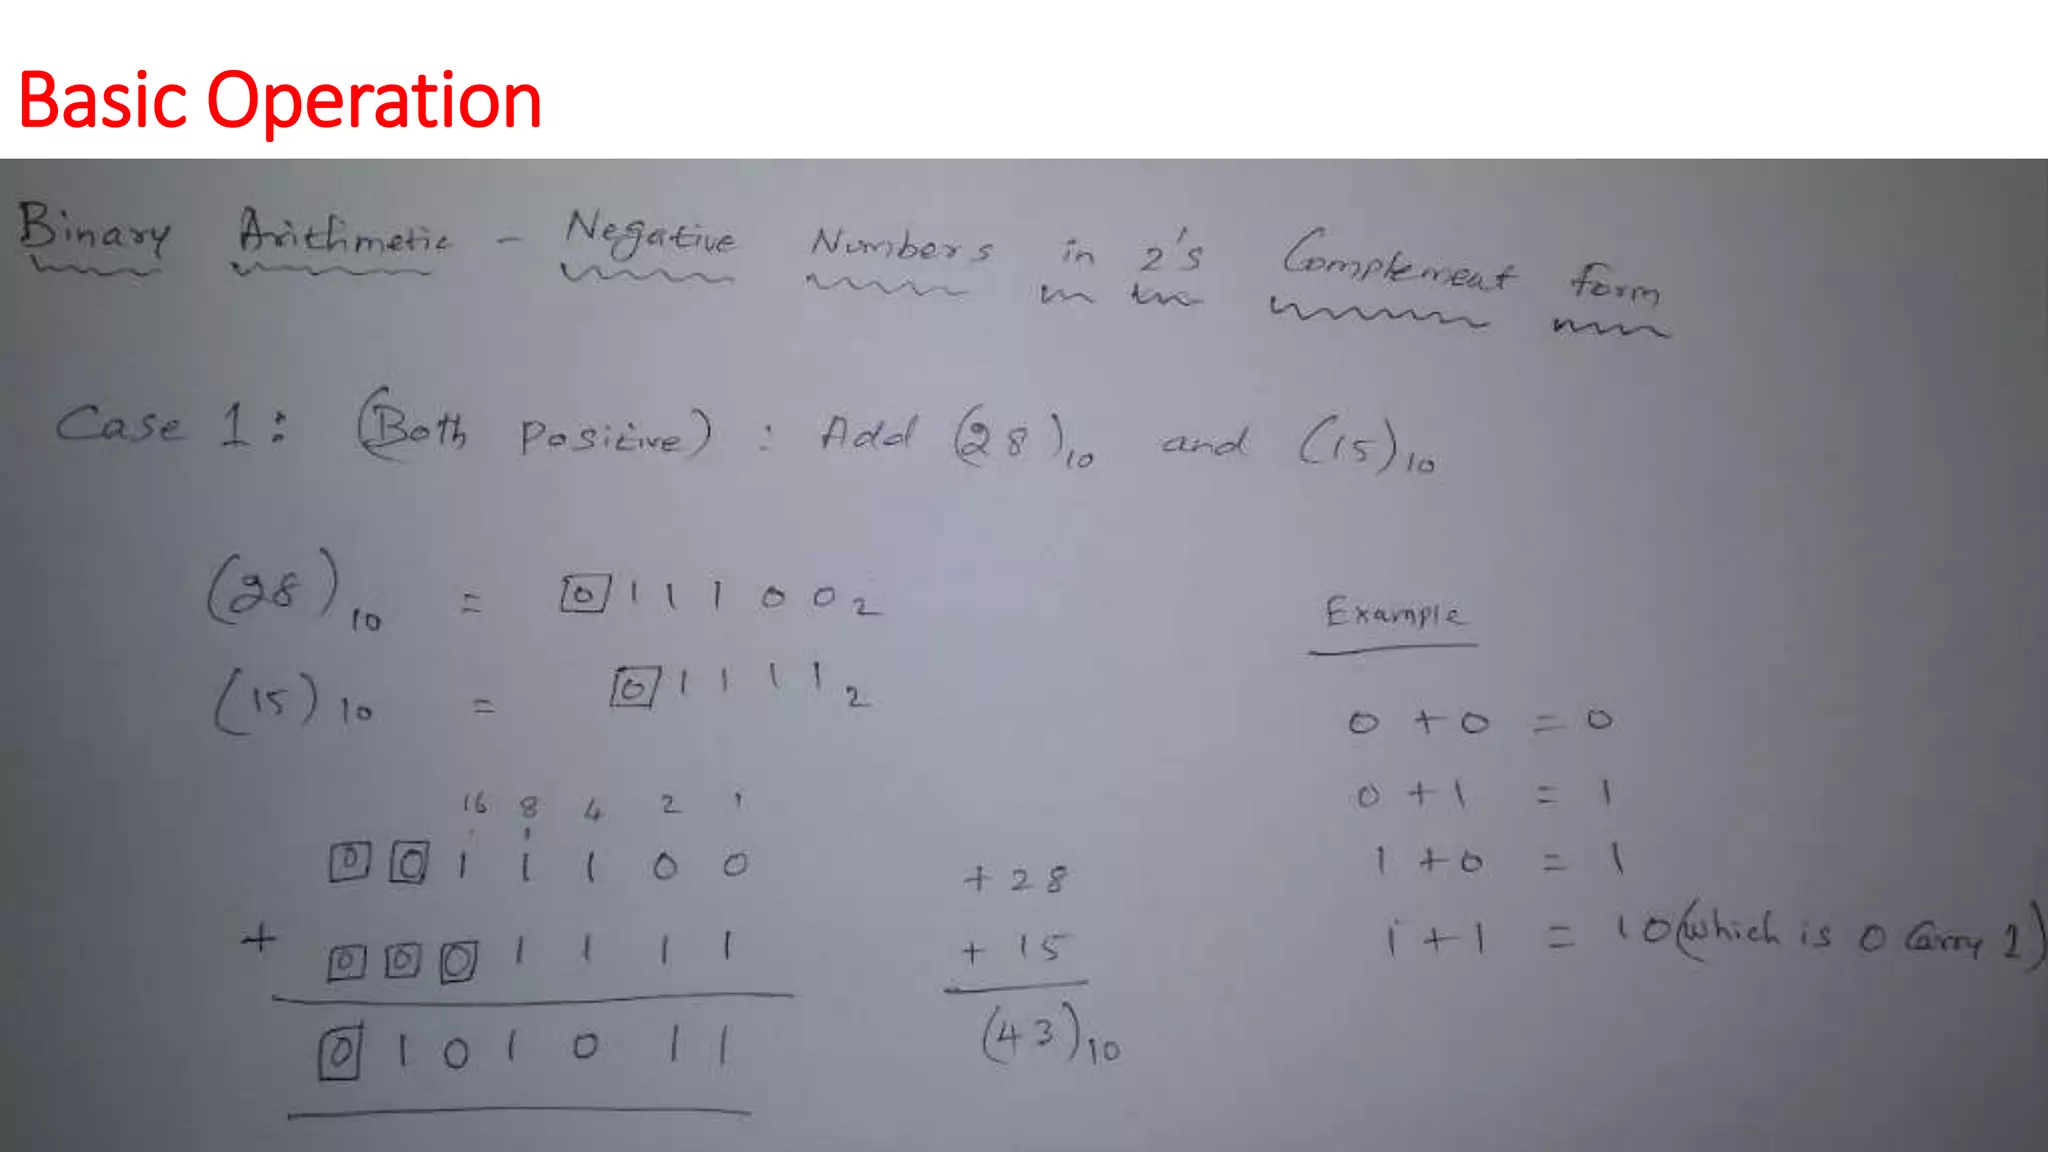 Basic Operation
Binary Arithmetic - Negative Numbers in 2's Complement form
Case 1: (Both positive) : Add (28)10 and (15)10
(28)10 = 0 1 1 1 0 0 2
(15)10 = 0 1 1 1 1 2
16 8 4 2 1
1 1
0 0 1 1 1 0 0
+ 0 0 0 1 1 1 1
0 1 0 1 0 1 1
+ 28
+ 15
(43)10
Example
0 + 0 = 0
0 + 1 = 1
1 + 0 = 1
1 + 1 = 10 (which is 0 Carry 1)